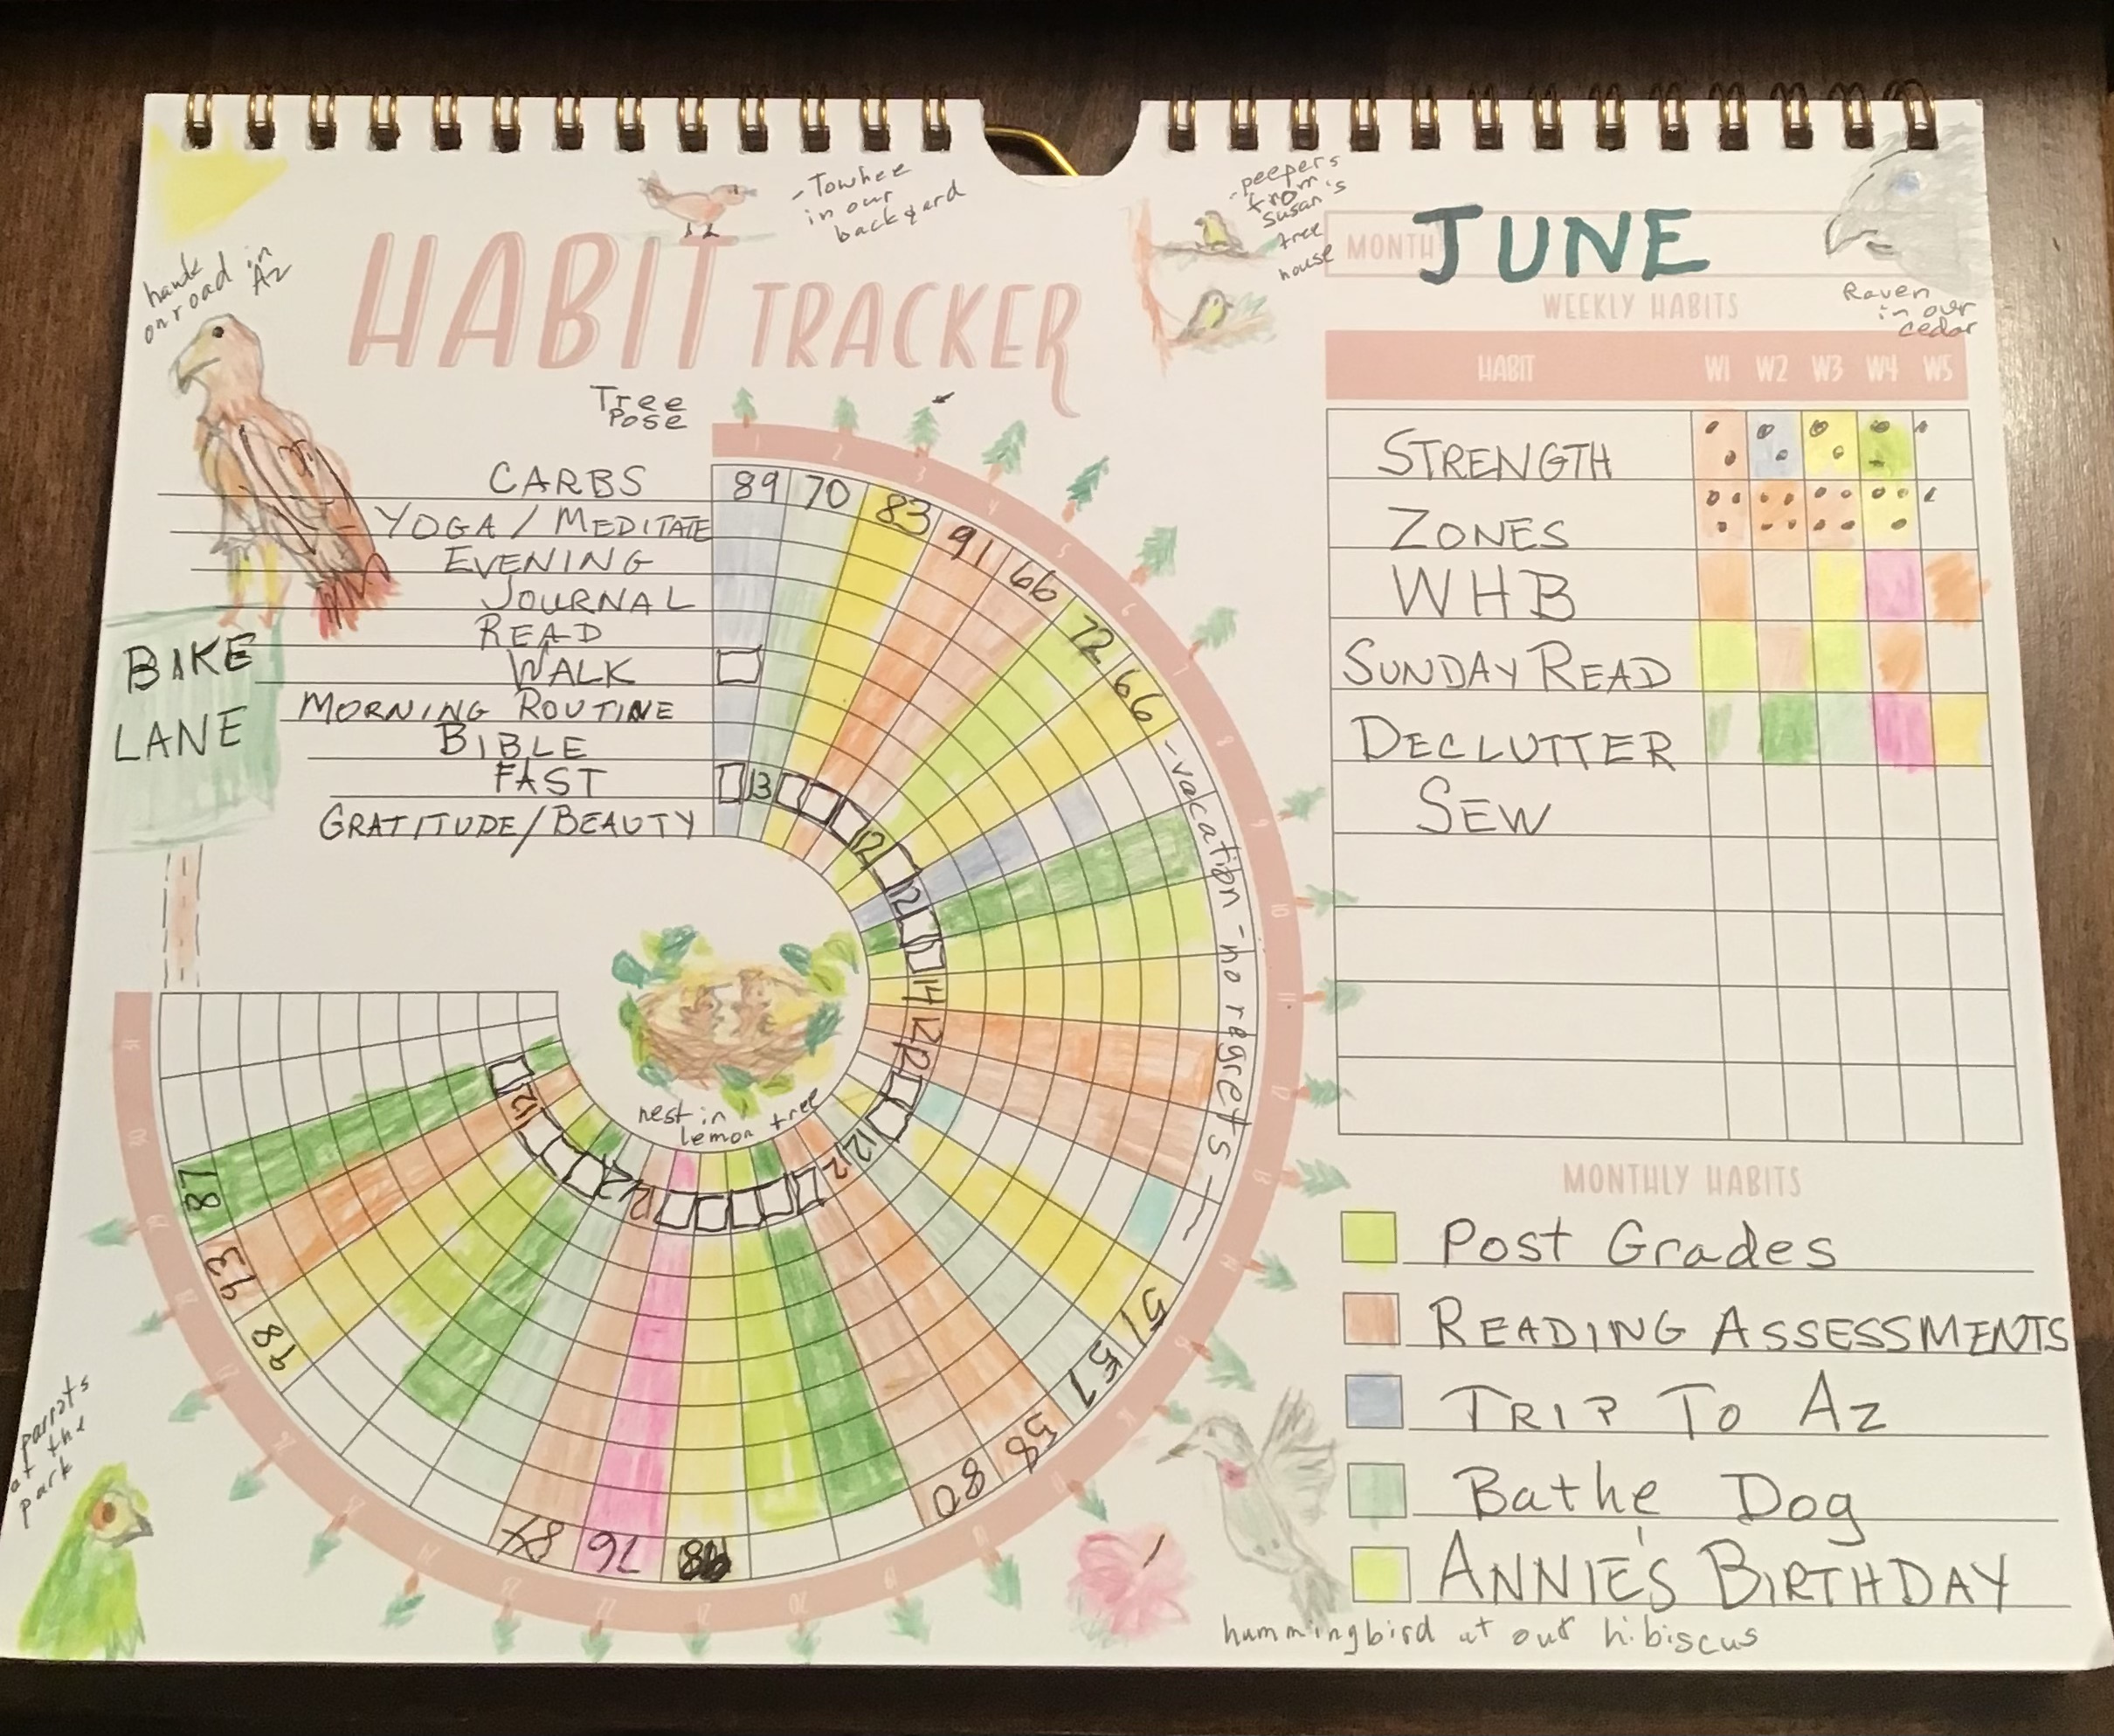 - Towhee
in our
backyard
- peepers
from
Susan's
tree
house
MONTH JUNE
Raven
in our
cedar
hawk
on road in
Az
HABIT TRACKER
WEEKLY HABITS
HABIT W1 W2 W3 W4 W5
STRENGTH
ZONES
WHB
SUNDAY READ
DECLUTTER
SEW
Tree
Pose
CARBS
YOGA / MEDITATE
EVENING
JOURNAL
READ
WALK
MORNING ROUTINE
BIBLE
FAST
GRATITUDE/BEAUTY
BIKE
LANE
1 2 3 4 5 6 7 8 9 10 11 12 13
89 70 83 91 66 72 66
- vacation - no regrets -
51 57 58 80
76
93 87
13 12 12
14 12 12
12 12
12 12
12
nest in
lemon tree
MONTHLY HABITS
Post Grades
READING ASSESSMENTS
TRIP TO AZ
Bathe Dog
ANNIE'S BIRTHDAY
parrots
at the
park
hummingbird at our hibiscus